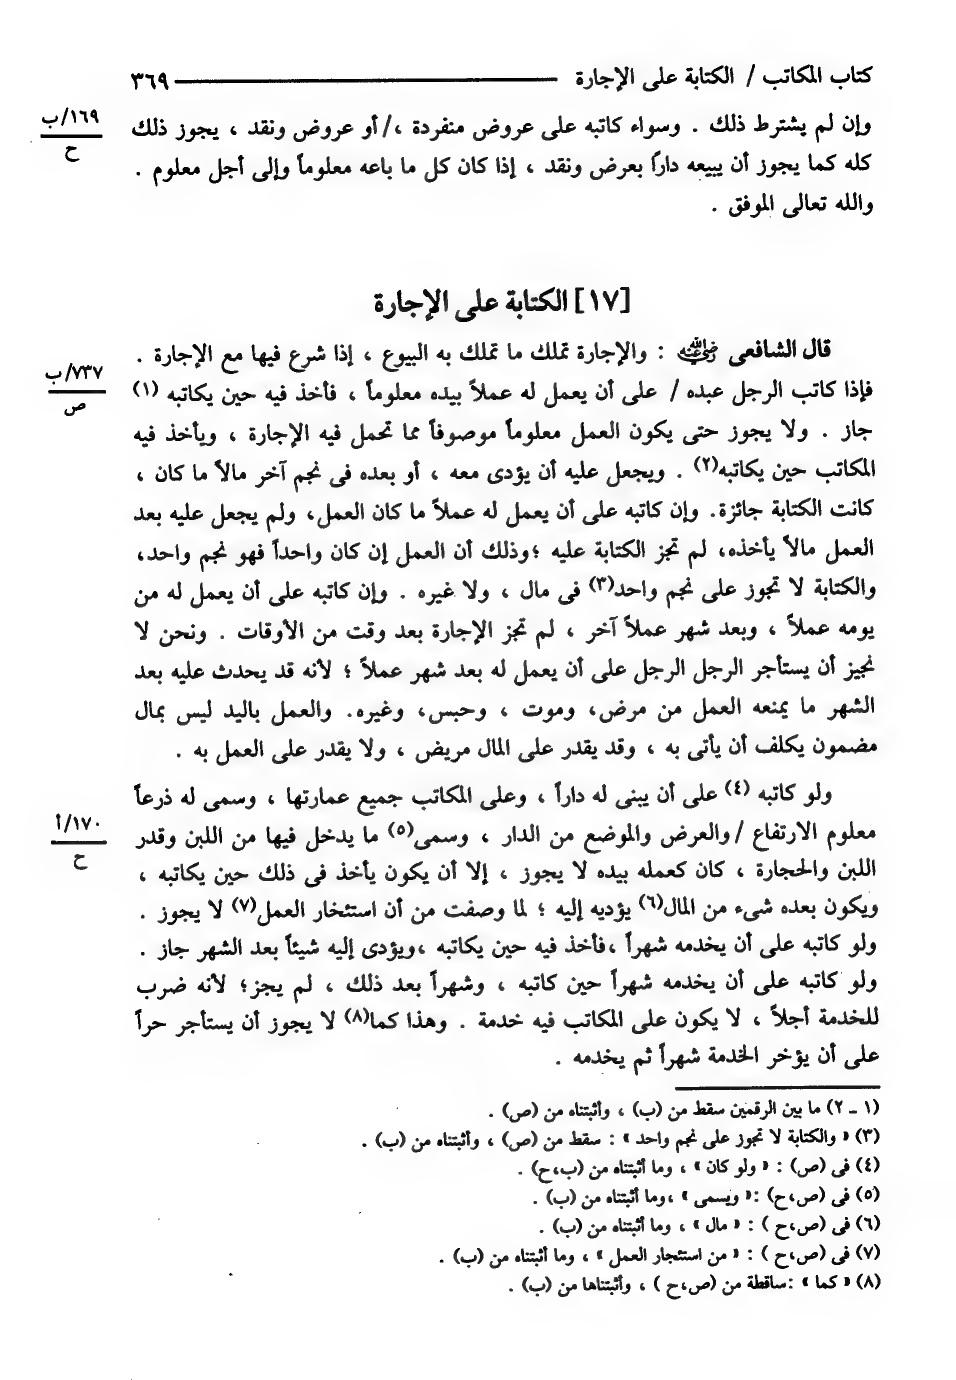 كتاب المكاتب / الكتابة على الإجارة ٣٦٩
وإن لم يشترط ذلك . وسواء كاتبه على عروض منفردة ،/ أو عروض ونقد ، يجوز ذلك
١٦٩/ب
ح
كله كما يجوز أن يبيعه داراً بعرض ونقد ، إذا كان كل ما باعه معلوماً وإلى أجل معلوم .
والله تعالى الموفق .
[١٧] الكتابة على الإجارة
قال الشافعى رضي الله عنه : والإجارة تملك ما تملك به البيوع ، إذا شرع فيها مع الإجارة .
فإذا كاتب الرجل عبده / على أن يعمل له عملاً بيده معلوماً ، فأخذ فيه حين يكاتبه (١)
٧٣٧/ب
ص
جاز . ولا يجوز حتى يكون العمل معلوماً موصوفاً مما تحمل فيه الإجارة ، ويأخذ فيه
المكاتب حين يكاتبه(٢) . ويجعل عليه أن يؤدى معه ، أو بعده فى نجم آخر مالاً ما كان ،
كانت الكتابة جائزة. وإن كاتبه على أن يعمل له عملاً ما كان العمل، ولم يجعل عليه بعد
العمل مالاً يأخذه، لم تجز الكتابة عليه ؛وذلك أن العمل إن كان واحداً فهو نجم واحد،
والكتابة لا تجوز على نجم واحد(٣) فى مال ، ولا غيره . وإن كاتبه على أن يعمل له من
يومه عملاً ، وبعد شهر عملاً آخر ، لم تجز الإجارة بعد وقت من الأوقات . ونحن لا
نجيز أن يستأجر الرجل الرجل على أن يعمل له بعد شهر عملاً ؛ لأنه قد يحدث عليه بعد
الشهر ما يمنعه العمل من مرض، وموت ، وحبس، وغيره. والعمل باليد ليس بمال
مضمون يكلف أن يأتى به ، وقد يقدر على المال مريض ، ولا يقدر على العمل به .
ولو كاتبه (٤) على أن يبنى له داراً ، وعلى المكاتب جميع عمارتها ، وسمى له ذرعاً
معلوم الارتفاع /والعرض والموضع من الدار ، وسمى(٥) ما يدخل فيها من اللبن وقدر
١٧٠/أ
ح
اللبن والحجارة ، كان كعمله بيده لا يجوز ، إلا أن يكون يأخذ فى ذلك حين يكاتبه ،
ويكون بعده شىء من المال(٦) يؤديه إليه ؛ لما وصفت من أن استئخار العمل(٧) لا يجوز .
ولو كاتبه على أن يخدمه شهراً ،فأخذ فيه حين يكاتبه ،ويؤدى إليه شيئاً بعد الشهر جاز .
ولو كاتبه على أن يخدمه شهراً حين كاتبه ، وشهراً بعد ذلك ، لم يجز؛ لأنه ضرب
للخدمة أجلاً ، لا يكون على المكاتب فيه خدمة . وهذا كما(٨) لا يجوز أن يستأجر حراً
على أن يؤخر الخدمة شهراً ثم يخدمه .
(١ ـ ٢) ما بين الرقمين سقط من (ب) ، وأثبتناه من (ص) .
(٣) « والكتابة لا تجوز على نجم واحد » : سقط من (ص) ، وأثبتناه من (ب) .
(٤) فى (ص) : « ولو كان » ، وما أثبتناه من (ب،ح) .
(٥) فى (ص،ح) :« ويسمى » ،وما أثبتناه من (ب) .
(٦) فى (ص،ح ) : « مال » ، وما أثبتناه من (ب) .
(٧) فى (ص،ح ) : « من استئجار العمل » ، وما أثبتناه من (ب) .
(٨) « كما » :ساقطة من (ص،ح ) ، وأثبتناها من (ب) .